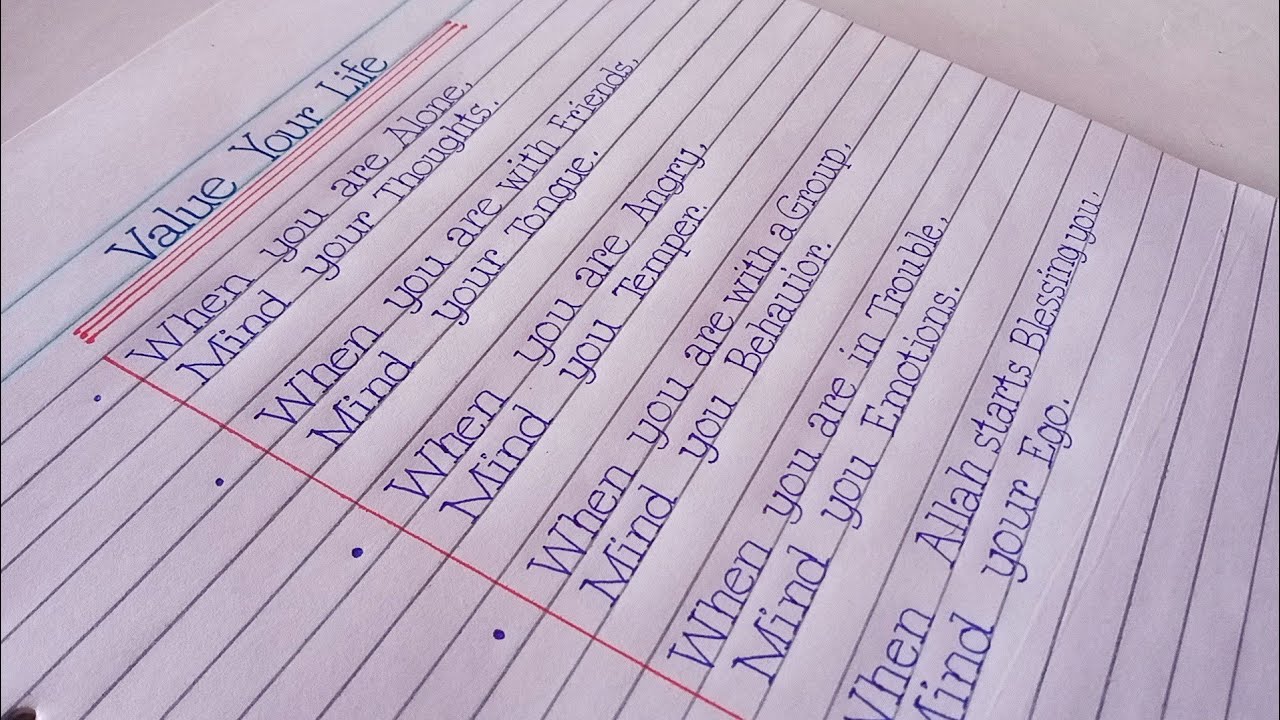 Value Your Life
When you are Alone,
Mind your Thoughts.
When you are with Friends,
Mind your Tongue.
When you are Angry,
Mind you Temper.
When you are with a Group,
Mind you Behauior.
When you are in Trouble,
Mind you Emotions.
When Allah starts Blessing you,
Mind your Ego.